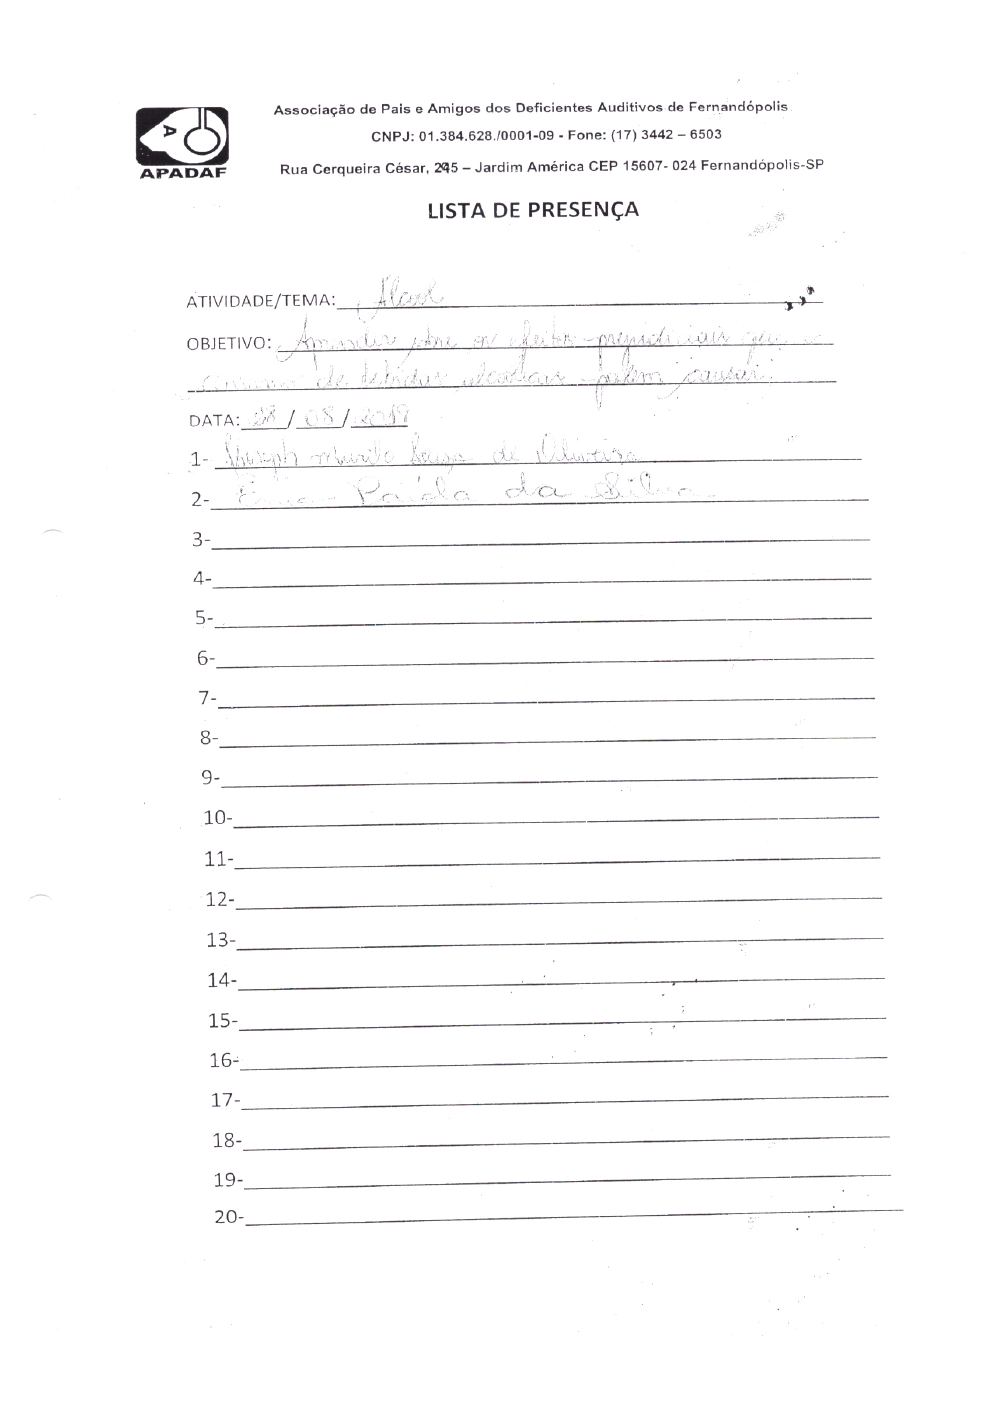 Associação de Pais e Amigos dos Deficientes Auditivos de Fernandópolis
CNPJ: 01.384.628./0001-09 - Fone: (17) 3442 – 6503
APADAF
Rua Cerqueira César, 245 – Jardim América CEP 15607- 024 Fernandópolis-SP
LISTA DE PRESENÇA
ATIVIDADE/TEMA: Álcool
OBJETIVO: Aprender sobre os efeitos prejudiciais que o
consumo de bebidas alcoólicas podem causar.
DATA: 28/08/2019
1- Murilo Souza de Oliveira
2- Paula da Silva
3-
4-
5-
6-
7-
8-
9-
10-
11-
12-
13-
14-
15-
16-
17-
18-
19-
20-